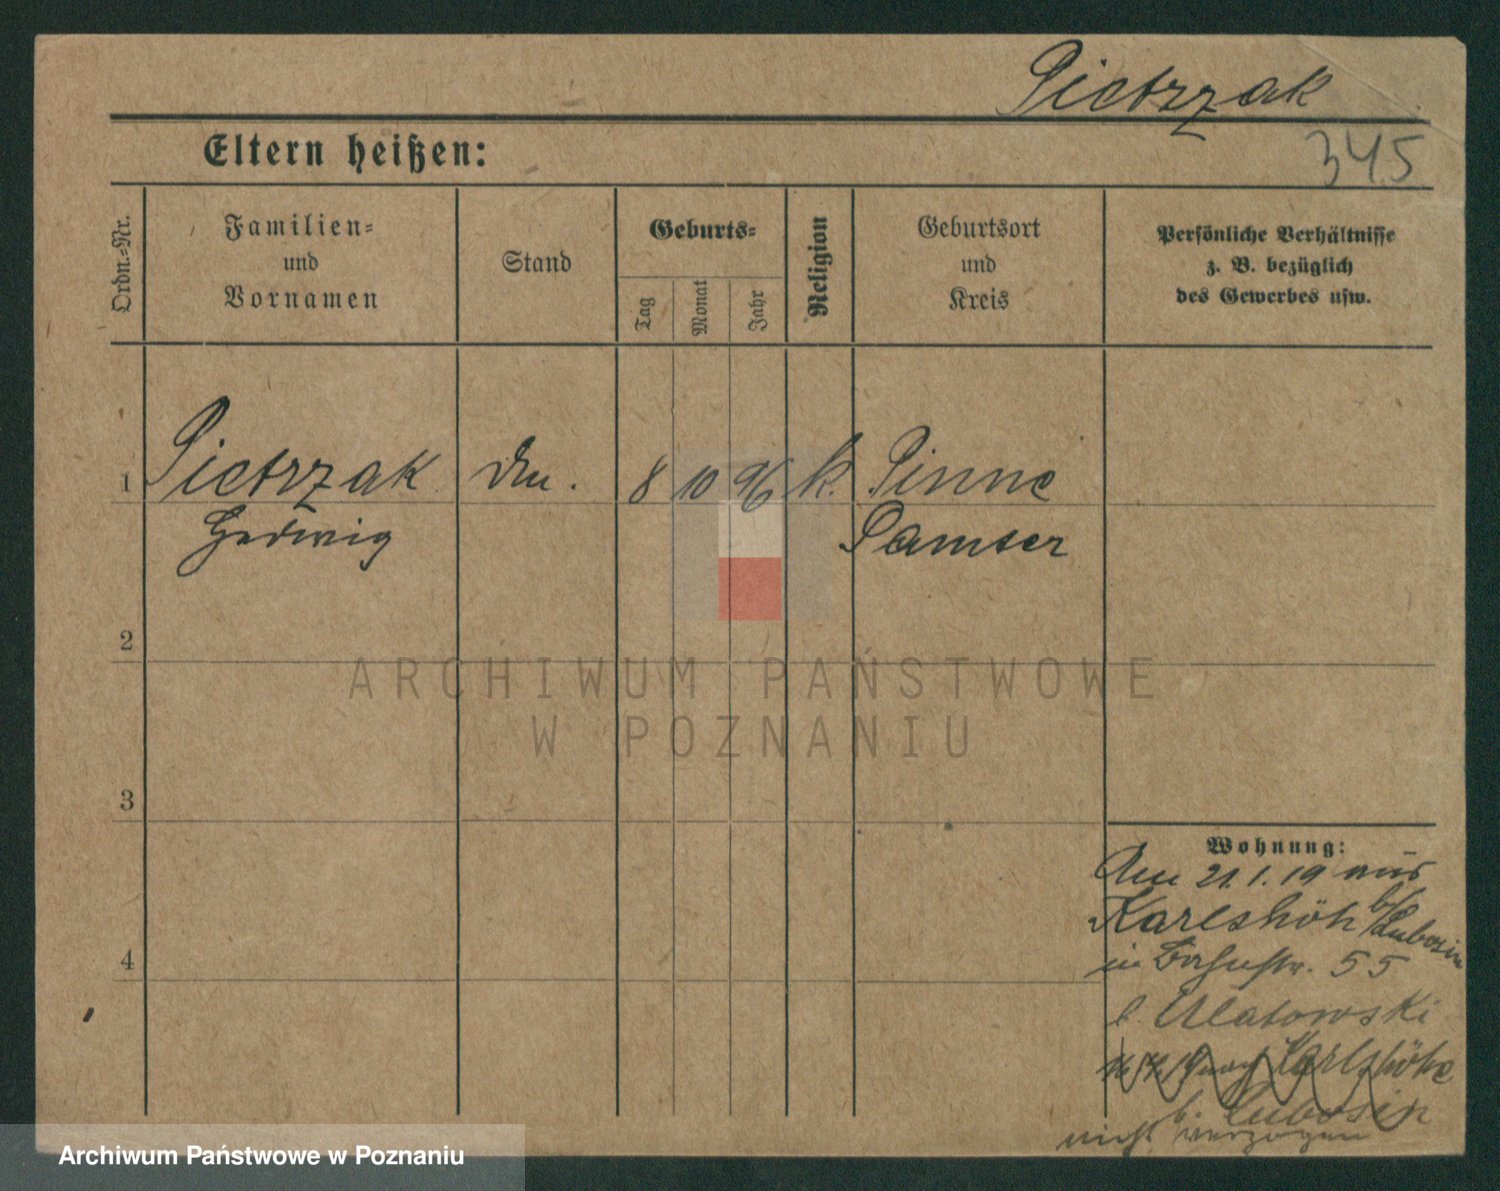 Pietrzak
Eltern heißen:
345
Ordn.-Nr.
Familien-
und
Vornamen
Stand
Geburts-
Tag
Monat
Jahr
Religion
Geburtsort
und
Kreis
Persönliche Verhältnisse
z. B. bezüglich
des Gewerbes usw.
1 Pietrzak 8 10 96 k. Pinne
Hedwig Samter
2
3
4
ARCHIWUM PAŃSTWOWE
W POZNANIU
Wohnung:
Am 21.1.19 aus
Karlshöh b/Lubosin
in Bahnstr. 55
b. Ulatowski
nach Karlshöhe
b. Lubosin
nicht verzogen
Archiwum Państwowe w Poznaniu